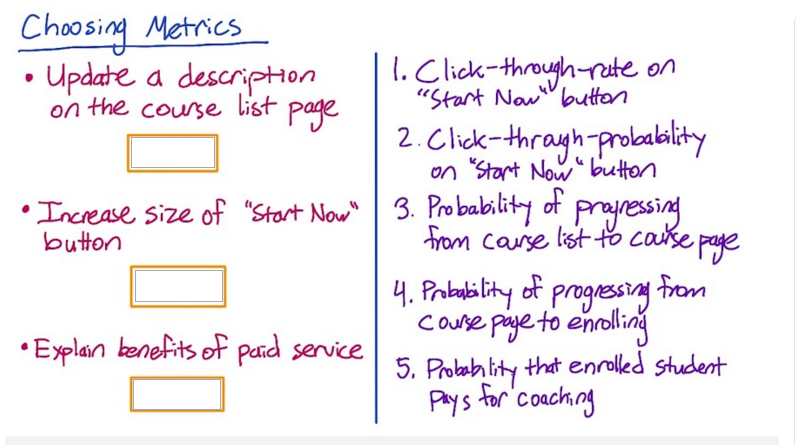 Choosing Metrics
• Update a description
on the course list page
• Increase size of "Start Now"
button
• Explain benefits of paid service
1. Click-through-rate on
"Start Now" button
2. Click-through-probability
on "Start Now" button
3. Probability of progressing
from course list to course page
4. Probability of progressing from
course page to enrolling
5. Probability that enrolled student
pays for coaching